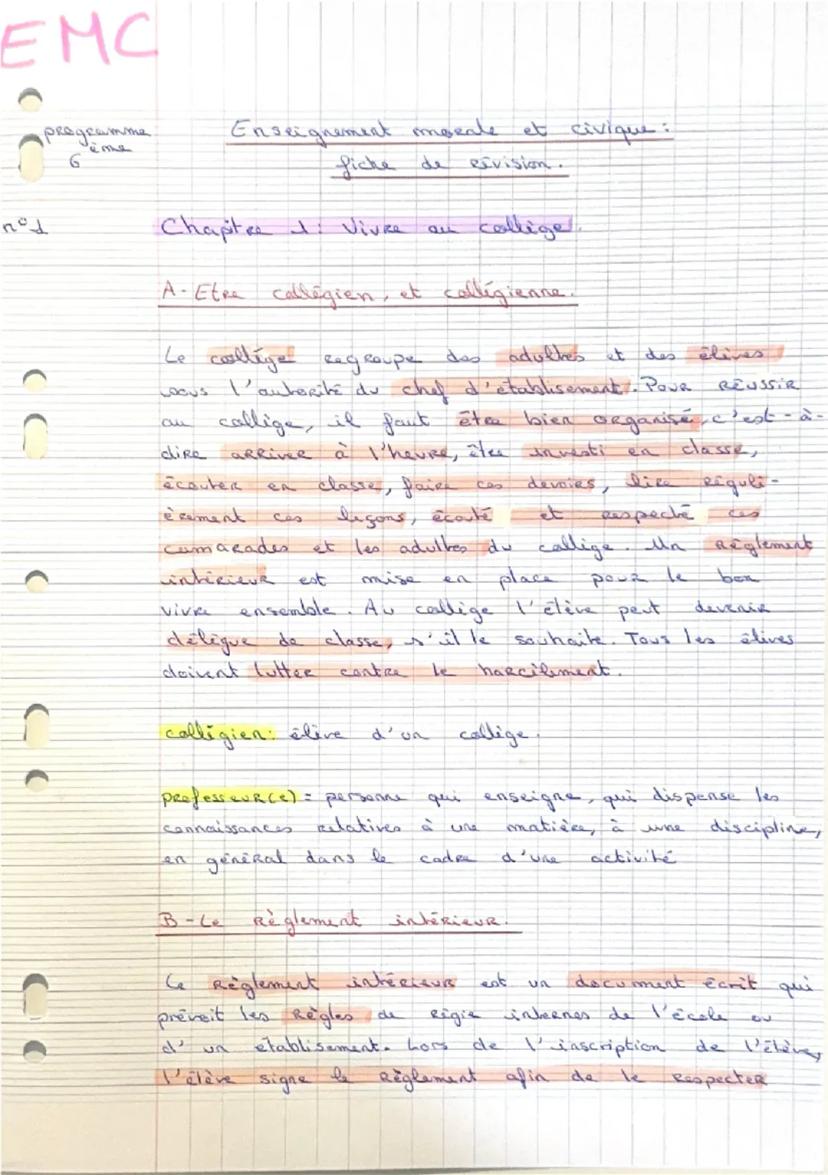 EMC
programme
6 ème
Enseignement morale et civique :
fiche de révision.
n°1
Chapitre 1 : Vivre au collège.
A - Etre collégien, et collégienne.
Le collége regroupe des adultes et des élèves
sous l'autorité du chef d'établisement. Pour réussir
au collège, il faut être bien organisé, c'est-à-
dire arriver à l'heure, être investi en classe,
écouter en classe, faire ces devoirs, lire réguli-
èrement ces leçons, écouté et respecté ces
camarades et les adultes du collège. Un règlement
intérieur est mise en place pour le bon
vivre ensemble. Au collège l'élève peut devenir
délégue de classe, s'il le souhaite. Tous les élèves
doivent lutter contre le harcèlement.
collégien : élève d'un collège.
professeur(e) = personne qui enseigne, qui dispense les
connaissances relatives à une matière, à une discipline,
en général dans le cadre d'une activité
B - Le Règlement intérieur.
Le Règlement intérieur est un document écrit qui
prévoit les Règles de régie internes de l'école ou
d'un établisement. Lors de l'inscription de l'élève,
l'élève signe le Règlement afin de le respecter